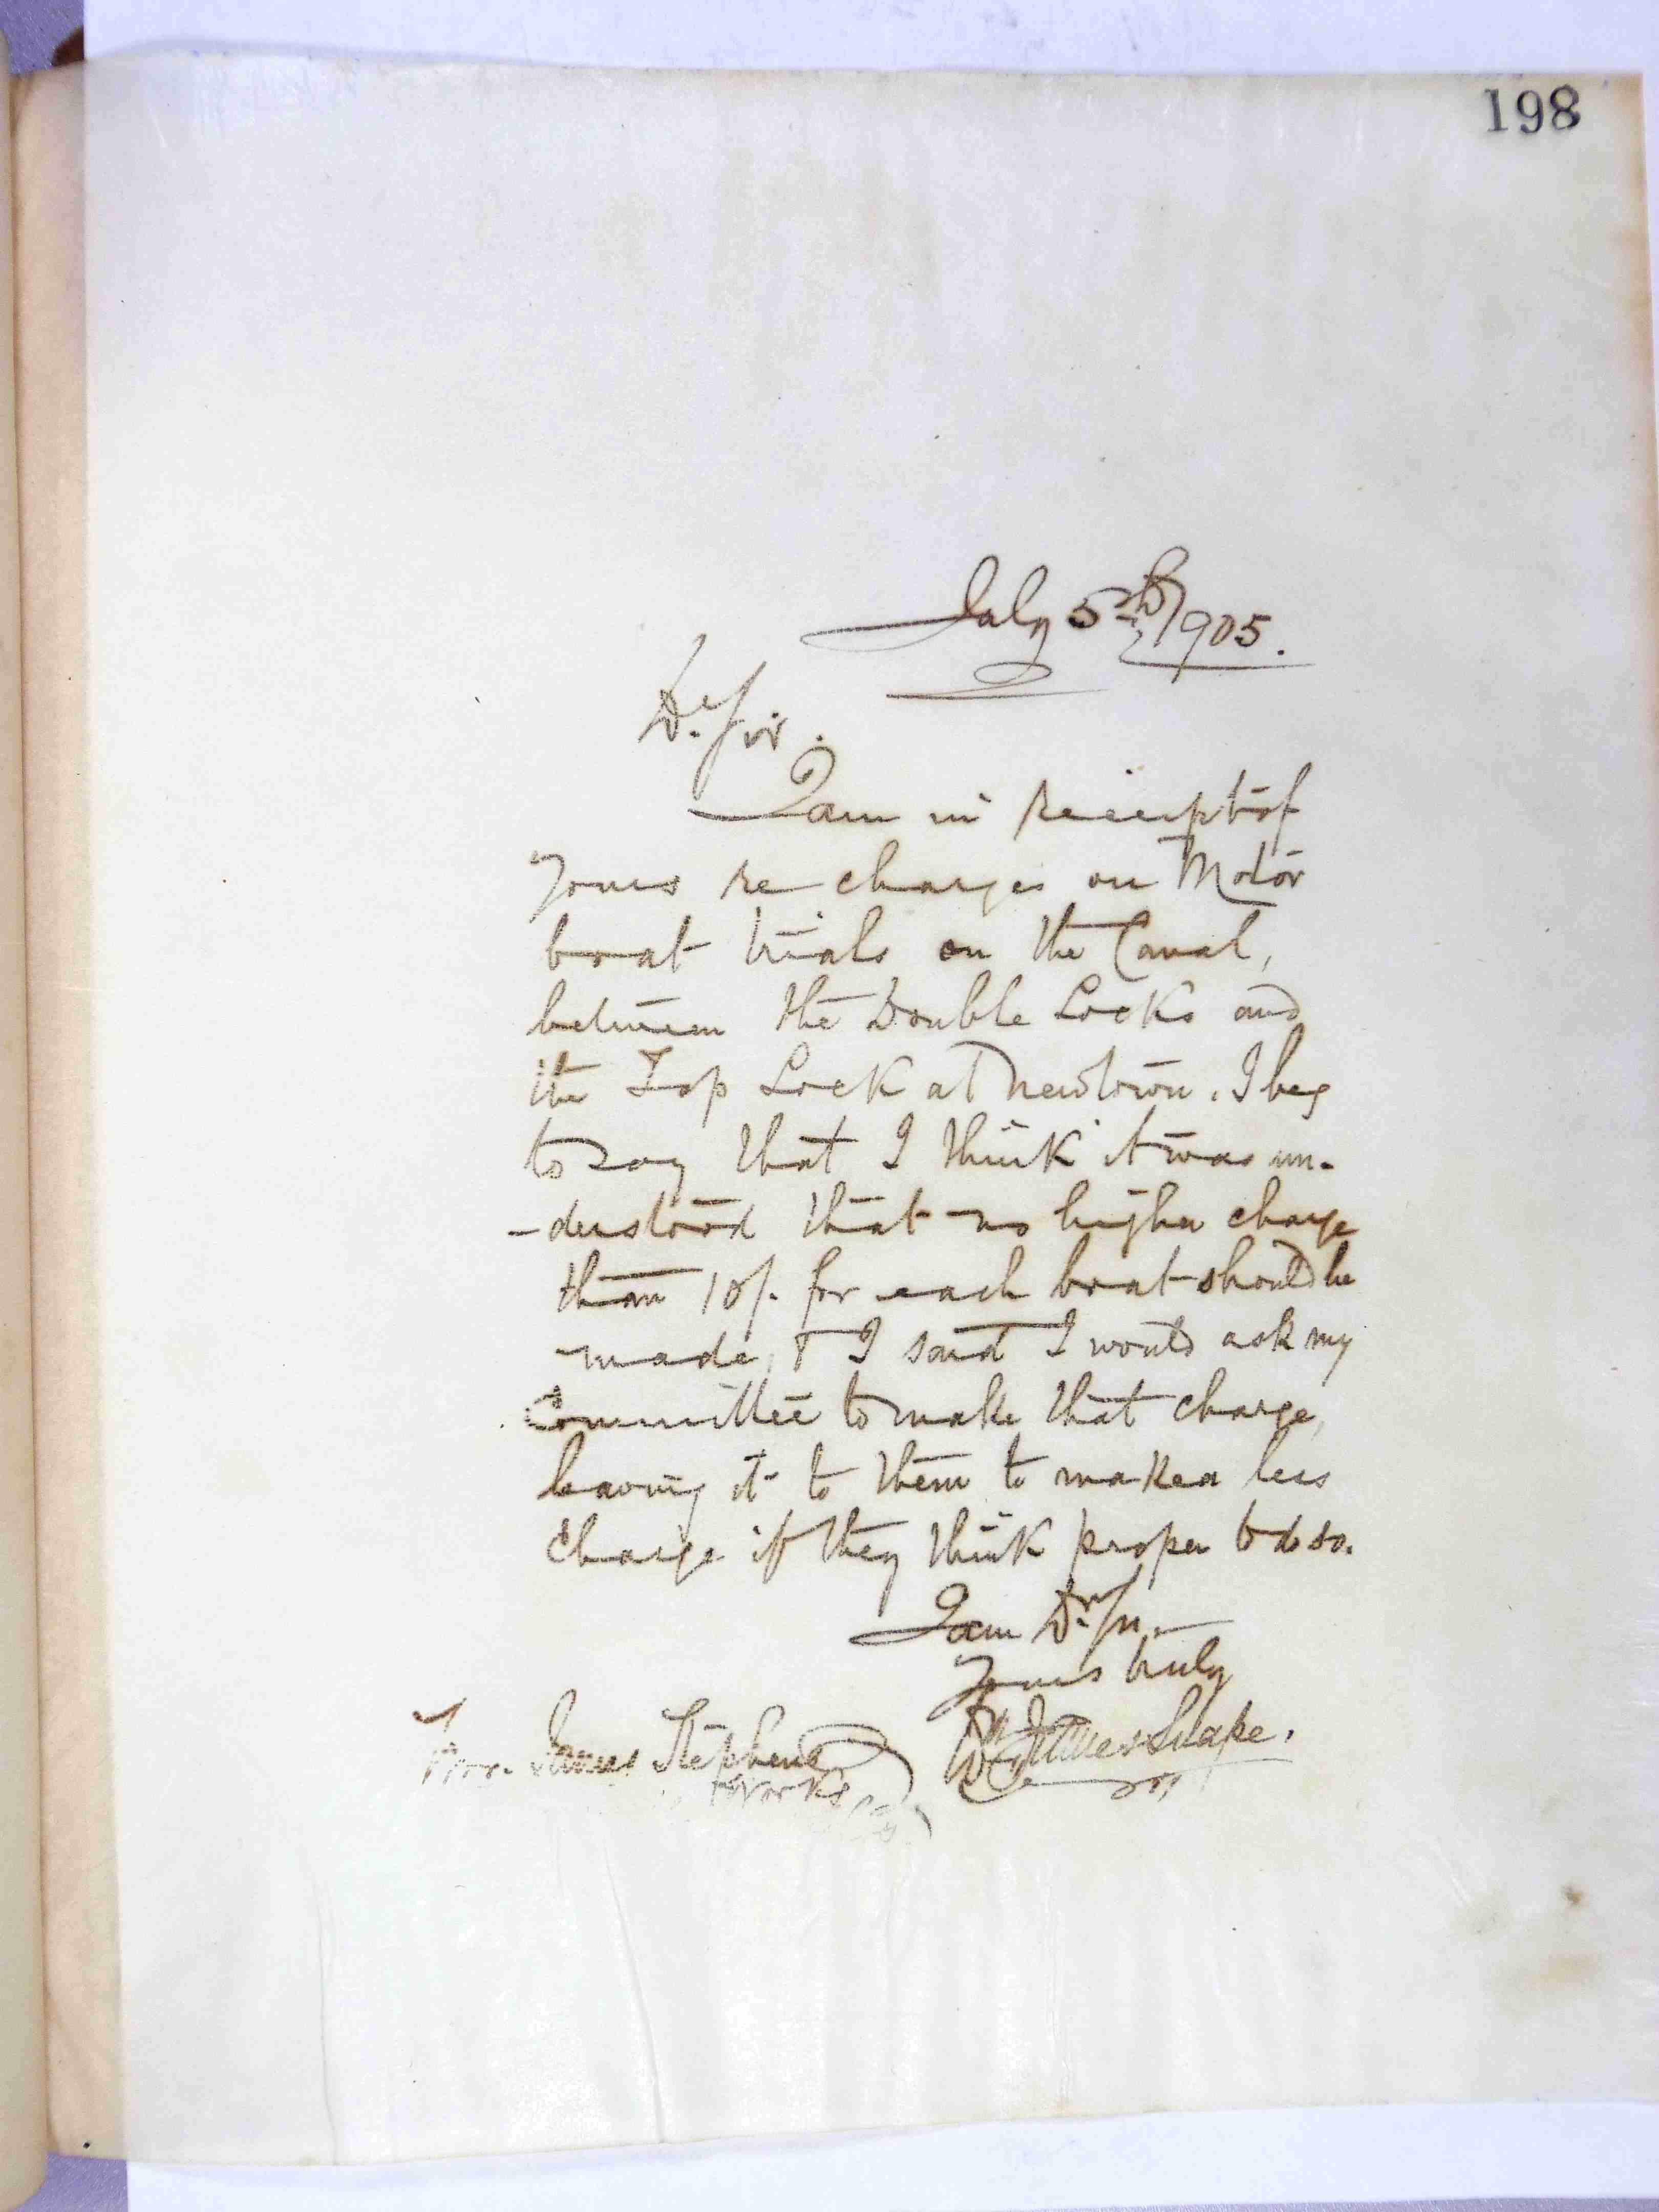 198
July 5th 1905.
Dr Sir.
I am in receipt of
Yours re charges on Motor
boat trials on the Canal,
between the Double Locks and
the Top Lock at Newtown. I beg
to say that I think it was un-
-derstood that no higher charge
than 10/- for each boat should be
made, & I said I would ask my
Committee to make that charge,
leaving it to them to make a less
charge if they think proper to do so.
I am Dr Sir.
Yours truly
James Stephens
Works